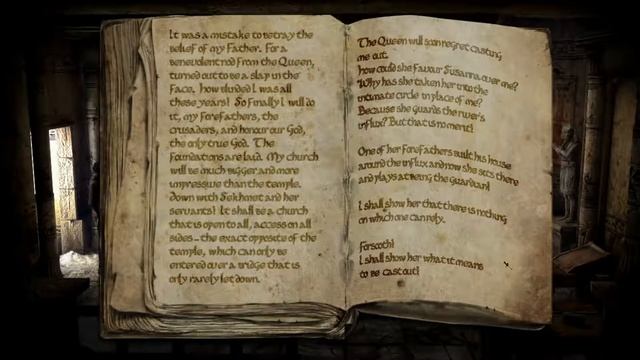 It was a mistake to betray the
belief of my Father. For a
benevolent nod from the Queen,
turned out to be a slap in the
face. how blinded I was all
these years! So finally I will do
it, my forefathers, the
crusaders, and honour our God,
the only true God. The
foundations are laid. My church
will be much bigger and more
impressive than the temple.
Down with Sekhmet and her
servants! It shall be a church
that is open to all, access on all
sides - the exact opposite of the
temple, which can only be
entered over a bridge that is
only rarely let down.
The Queen will soon regret casting
me out.
how could she favour Susanna over me?
Why has she taken her into the
intimate circle in place of me?
Because she guards the river's
influx? But that is no merit!
One of her forefathers built his house
around the influx and now she sits there
and plays at being the guardian!
I shall show her that there is nothing
on which one can rely.
Forsooth!
I shall show her what it means
to be cast out!